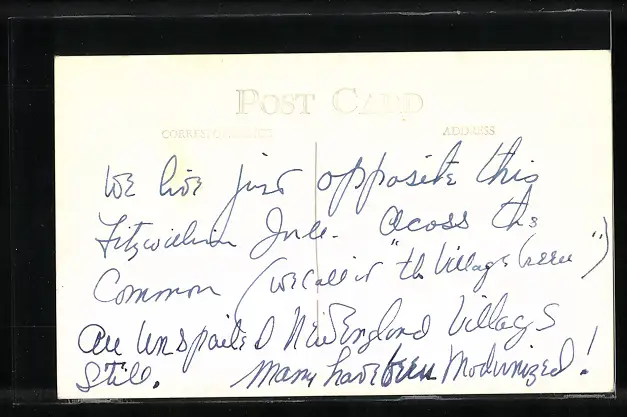 POST CARD
CORRESPONDENCE ADDRESS
We live just opposite this
Fitzwilliam Inn. Acoss the
Common (we call it "the Village Green")
an unspoiled New England Village
Still. Many have been Modernized!